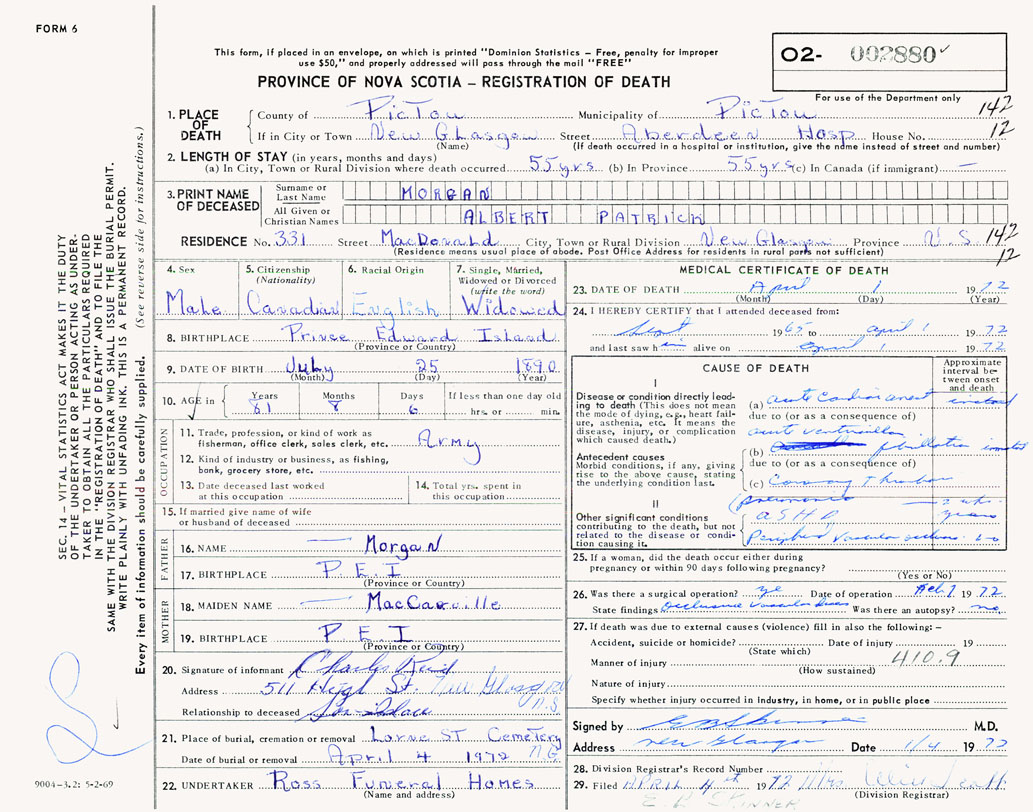 FORM 6
This form, if placed in an envelope, on which is printed "Dominion Statistics – Free, penalty for improper
use $50," and properly addressed will pass through the mail "FREE"
O2- 002880
PROVINCE OF NOVA SCOTIA – REGISTRATION OF DEATH
For use of the Department only
1. PLACE OF DEATH
County of PicTou Municipality of PicTou 142
If in City or Town New Glasgow Street Aberdeen Hosp House No. 12
(Name) (If death occurred in a hospital or institution, give the name instead of street and number)
2. LENGTH OF STAY (in years, months and days)
(a) In City, Town or Rural Division where death occurred 55 yrs (b) In Province 55 yrs (c) In Canada (if immigrant) —
3. PRINT NAME OF DECEASED
Surname or Last Name MORGAN
All Given or Christian Names ALBERT PATRICK
RESIDENCE No. 331 Street MacDonald City, Town or Rural Division New Glasgow Province N.S. 142
(Residence means usual place of abode. Post Office Address for residents in rural parts not sufficient) 12
4. Sex Male
5. Citizenship (Nationality) Canadian
6. Racial Origin English
7. Single, Married, Widowed or Divorced (write the word) Widowed
8. BIRTHPLACE Prince Edward Island
(Province or Country)
9. DATE OF BIRTH July 25 1890
(Month) (Day) (Year)
10. AGE in Years 81 Months 8 Days 6 If less than one day old hrs. or min.
OCCUPATION
11. Trade, profession, or kind of work as fishermon, office clerk, sales clerk, etc. Army
12. Kind of industry or business, as fishing, bank, grocery store, etc.
13. Date deceased last worked at this occupation
14. Total yrs. spent in this occupation
15. If married give name of wife or husband of deceased
FATHER
16. NAME — Morgan
17. BIRTHPLACE P.E.I
(Province or Country)
MOTHER
18. MAIDEN NAME — MacCarville
19. BIRTHPLACE P E I
(Province or Country)
20. Signature of informant Charles Reid
Address 511 High St. New Glasgow N.S.
Relationship to deceased Son-
21. Place of burial, cremation or removal Lorne ST Cemetery N.G.
Date of burial or removal April 4 1972
22. UNDERTAKER Ross Funeral Homes
(Name and address)
MEDICAL CERTIFICATE OF DEATH
23. DATE OF DEATH April 1 1972
(Month) (Day) (Year)
24. I HEREBY CERTIFY that I attended deceased from:
Sept 1965 to April 1 1972
and last saw him alive on April 1 1972
CAUSE OF DEATH
Approximate interval between onset and death
I
Disease or condition directly leading to death (This does not mean the mode of dying, e.g., heart failure, asthenia, etc. It means the disease, injury, or complication which caused death.)
(a) acute cardiac arrest
due to (or as a consequence of)
acute ventricular
(b) fibrillation
due to (or as a consequence of)
Antecedent causes
Morbid conditions, if any, giving rise to the above cause, stating the underlying condition last.
(c) Coronary
II
Other significant conditions contributing to the death, but not related to the disease or condition causing it.
pneumonia
ASHD years
Vascular
25. If a woman, did the death occur either during pregnancy or within 90 days following pregnancy?
(Yes or No)
26. Was there a surgical operation? yes Date of operation Feb 7 1972
State findings Occlusive Vascular Was there an autopsy? no
27. If death was due to external causes (violence) fill in also the following: –
Accident, suicide or homicide? Date of injury 19
(State which)
Manner of injury 410.9
(How sustained)
Nature of injury
Specify whether injury occurred in industry, in home, or in public place
Signed by M.D.
Address New Glasgow Date 1/4 1972
28. Division Registrar's Record Number
29. Filed APRIL 4th 1972 Mrs
(Division Registrar)
E. SKINNER
SEC. 14 – VITAL STATISTICS ACT MAKES IT THE DUTY
OF THE UNDERTAKER OR PERSON ACTING AS UNDER-
TAKER TO OBTAIN ALL THE PARTICULARS REQUIRED
IN THE "REGISTRATION OF DEATH" AND TO FILE THE
SAME WITH THE DIVISION REGISTRAR WHO SHALL ISSUE THE BURIAL PERMIT.
WRITE PLAINLY WITH UNFADING INK. THIS IS A PERMANENT RECORD.
Every item of information should be carefully supplied. (See reverse side for instructions.)
9004-3.2: 5-2-69